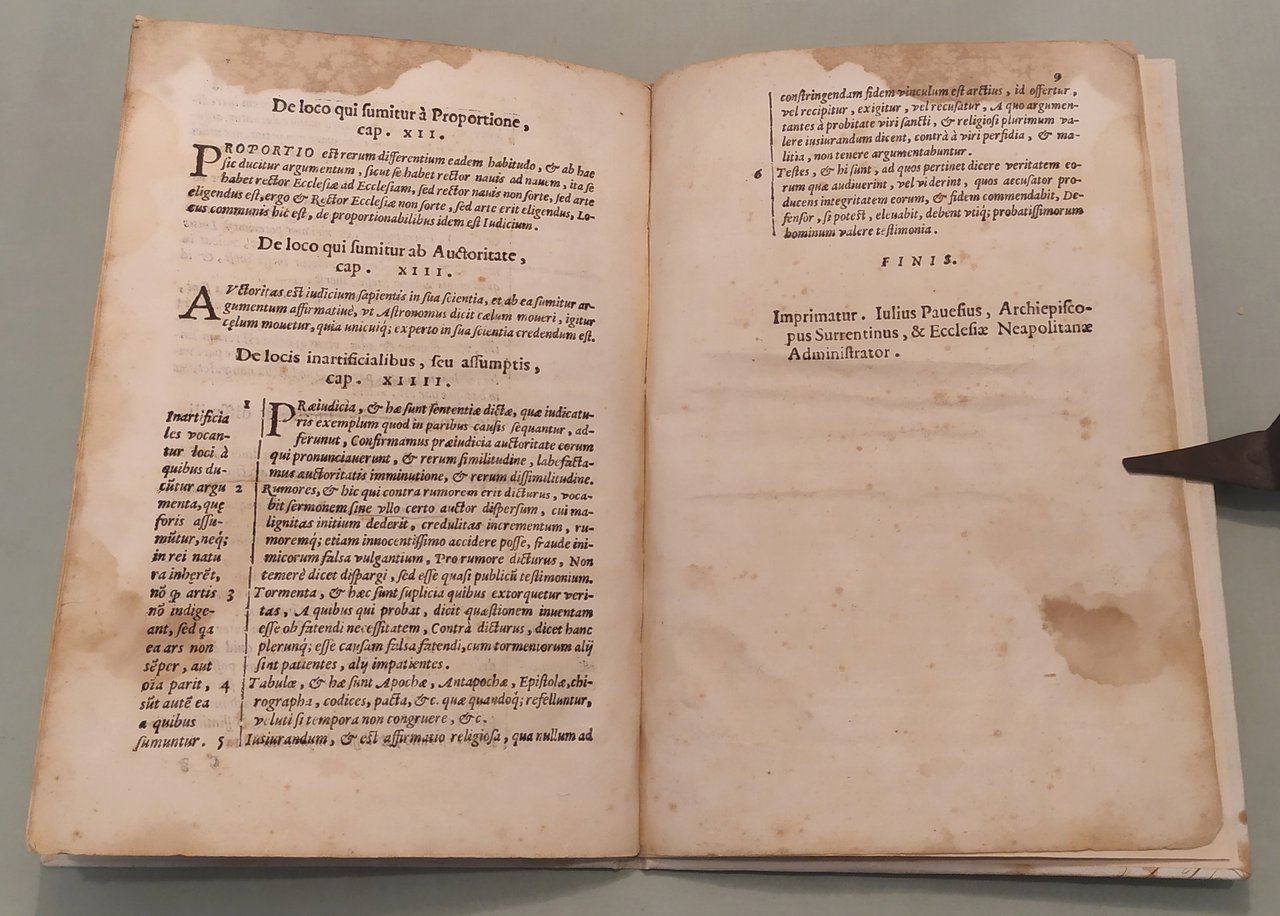 De loco qui sumitur à Proportione,
cap. XII.
PROPORTIO est rerum differentium eadem habitudo, & ab hae
sic ducitur argumentum, sicut se habet rector nauis ad nauem, ita se
habet rector Ecclesiæ ad Ecclesiam, sed rector nauis non sorte, sed arte
eligendus est, ergo & Rector Ecclesiæ non sorte, sed arte erit eligendus, Lo-
cus communis hic est, de proportionabilibus idem est Iudicium.
De loco qui sumitur ab Auctoritate,
cap. XIII.
AVctoritas est iudicium sapientis in sua scientia, et ab ea sumitur ar-
gumentum affirmatiuè, vt Astronomus dicit cælum moueri, igitur
cęlum mouetur, quia unicuiq; experto in sua scientia credendum est.
De locis inartificialibus, seu assumptis,
cap. XIIII.
Inartificia
les vocan-
tur loci à
quibus du-
cũtur argu
menta, quę
foris assu-
mũtur, neq;
in rei natu
ra inhęrẽt,
nõ ꝙ artis
nõ indige-
ant, sed qa
ea ars non
sẽper, aut
oĩa parit,
sũt autẽ ea
a quibus
sumuntur.
1 PRæiudicia, & hæ sunt sententiæ dictæ, quæ iudicatu-
ris exemplum quod in paribus causis sequantur, ad-
ferunut, Confirmamus præiudicia auctoritate eorum
qui pronunciauerunt, & rerum similitudine, labefacta-
mus auctoritatis imminutione, & rerum dissimilitudine.
2 Rumores, & hic qui contra rumorem erit dicturus, voca-
bit sermonem sine vllo certo auctor dispersum, cui ma-
lignitas initium dederit, credulitas incrementum, ru-
moremq; etiam innocentissimo accidere posse, fraude ini-
micorum falsa vulgantium, Pro rumore dicturus, Non
temerè dicet dispargi, sed esse quasi publicũ testimonium.
3 Tormenta, & hæc sunt suplicia quibus extorquetur veri-
tas, A quibus qui probat, dicit quæstionem inuentam
esse ob fatendi necessitatem, Contrà dicturus, dicet hanc
plerunq; esse causam falsa fatendi, cum tormentorum alij
sint patientes, alij impatientes.
4 Tabulæ, & hæ sunt Apochæ, Antapochæ, Epistolæ, chi-
rographa, codices, pacta, &c. quæ quandoq; refelluntur,
veluti si tempora non congruere, &c.
5 Iusiurandum, & est affirmatio religiosa, qua nullum ad
9
constringendam fidem vinculum est arctius, id offertur,
vel recipitur, exigitur, vel recusatur, A quo argumen-
tantes à probitate viri sancti, & religiosi plurimum va-
lere iusiurandum dicent, contrà à viri perfidia, & ma-
litia, non tenere argumentabuntur.
6 Testes, & hi sunt, ad quos pertinet dicere veritatem eo-
rum quæ audiuerint, vel viderint, quos accusator pro-
ducens integritatem eorum, & fidem commendabit, De-
fensor, si potest, eleuabit, debent vtiq; probatissimorum
hominum valere testimonia.
FINIS.
Imprimatur. Iulius Pauesius, Archiepisco-
pus Surrentinus, & Ecclesiæ Neapolitanæ
Administrator.